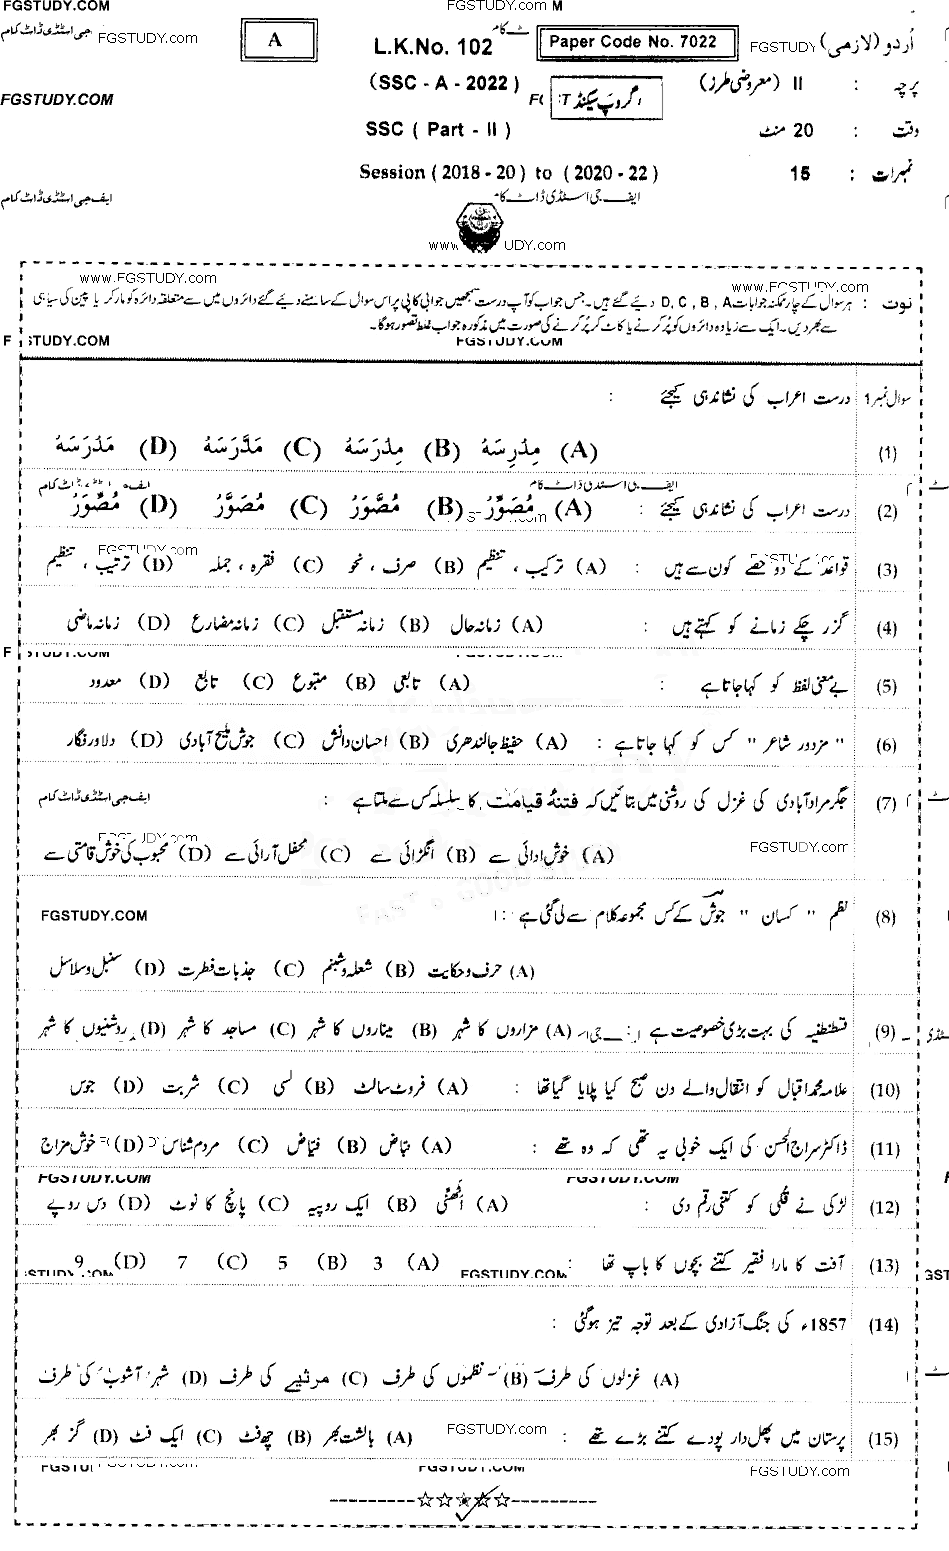 FGSTUDY.COM
FGSTUDY.com M
جی اسٹڈی ڈاٹ کام FGSTUDY.com
A
L.K.No. 102
Paper Code No. 7022
اُردو (لازمی) FGSTUDY
(SSC - A - 2022)
گروپ سیکنڈ
پرچہ : II (معروضی طرز)
FGSTUDY.COM
SSC ( Part - II )
وقت : 20 منٹ
Session ( 2018 - 20 ) to ( 2020 - 22 )
نمبرات : 15
ایف جی اسٹڈی ڈاٹ کام
ایف جی اسٹڈی ڈاٹ کام
www. UDY.com
www.FGSTUDY.com
www.FGSTUDY.com
نوٹ : ہر سوال کے چار ممکنہ جوابات D, C, B, A دیئے گئے ہیں۔ جس جواب کو آپ درست سمجھیں جوابی کاپی پر اس سوال کے سامنے دیئے گئے دائروں میں سے متعلقہ دائرہ کو مارکر یا پین کی سیاہی
سے بھر دیں۔ ایک سے زیادہ دائروں کو پُر کرنے یا کاٹ کر پُر کرنے کی صورت میں مذکورہ جواب غلط تصور ہوگا۔
F STUDY.COM
FGSTUDY.COM
سوال نمبر 1 درست اعراب کی نشاندہی کیجئے :
(1) (A) مِدْرِسَہْ (B) مِدْرَسَہْ (C) مَدَّرَسَہْ (D) مَدْرَسَہْ
ایف جی اسٹڈی ڈاٹ کام
(2) درست اعراب کی نشاندہی کیجئے : (A) مُصَوِّرْ (B) مُصَّوَرْ (C) مُصَوَّرْ (D) مُصِّوَرْ
FGSTUDY.com
(3) قواعد کے دو حصے کون سے ہیں : (A) ترکیب ، تنظیم (B) صرف ، نحو (C) فقرہ ، جملہ (D) ترتیب ، تنظیم
(4) گزر چکے زمانے کو کہتے ہیں : (A) زمانہ حال (B) زمانہ مستقبل (C) زمانہ مضارع (D) زمانہ ماضی
F STUDY.COM
(5) بے معنی لفظ کو کہا جاتا ہے : (A) تابعی (B) متبوع (C) تابع (D) معدود
(6) " مزدور شاعر " کس کو کہا جاتا ہے : (A) حفیظ جالندھری (B) احسان دانش (C) جوش ملیح آبادی (D) دلاور نگار
(7) جگر مراد آبادی کی غزل کی روشنی میں بتائیں کہ فتنۂ قیامت کا سلسلہ کس سے ملتا ہے :
ایف جی اسٹڈی ڈاٹ کام
FGSTUDY.com
FGSTUDY.com
(A) خوش ادائی سے (B) انگڑائی سے (C) محفل آرائی سے (D) محبوب کی خوش قامتی سے
(8) نظم " کسان " جوش کے کس مجموعہ کلام سے لی گئی ہے :
FGSTUDY.COM
(A) حرف و حکایت (B) شعلہ و شبنم (C) جذبات فطرت (D) سنبل و سلاسل
(9) قسطنطنیہ کی بہت بڑی خصوصیت ہے (A) مزاروں کا شہر (B) میناروں کا شہر (C) مساجد کا شہر (D) روشنیوں کا شہر
(10) علامہ محمد اقبال کو انتقال والے دن صبح کیا پلایا گیا تھا : (A) فروٹ سالٹ (B) لسی (C) شربت (D) جوس
(11) ڈاکٹر سراج الحسن کی ایک خوبی یہ تھی کہ وہ تھے : (A) نباض (B) فیاض (C) مردم شناس (D) خوش مزاج
FGSTUDY.COM
FGSTUDY.COM
(12) لڑکی نے قلی کو کتنی رقم دی : (A) اٹھنی (B) ایک روپیہ (C) پانچ کا نوٹ (D) دس روپے
(13) آفت کا مارا فقیر کتنے بچوں کا باپ تھا : (A) 3 (B) 5 (C) 7 (D) 9
FGSTUDY.COM
(14) 1857ء کی جنگ آزادی کے بعد توجہ تیز ہوگئی :
(A) غزلوں کی طرف (B) نظموں کی طرف (C) مرثیے کی طرف (D) شہر آشوب کی طرف
(15) پرستان میں پھل دار پودے کتنے بڑے تھے : (A) بالشت بھر (B) چھ فٹ (C) ایک فٹ (D) گز بھر
FGSTUDY.com
FGSTUDY.COM
FGSTUDY.com